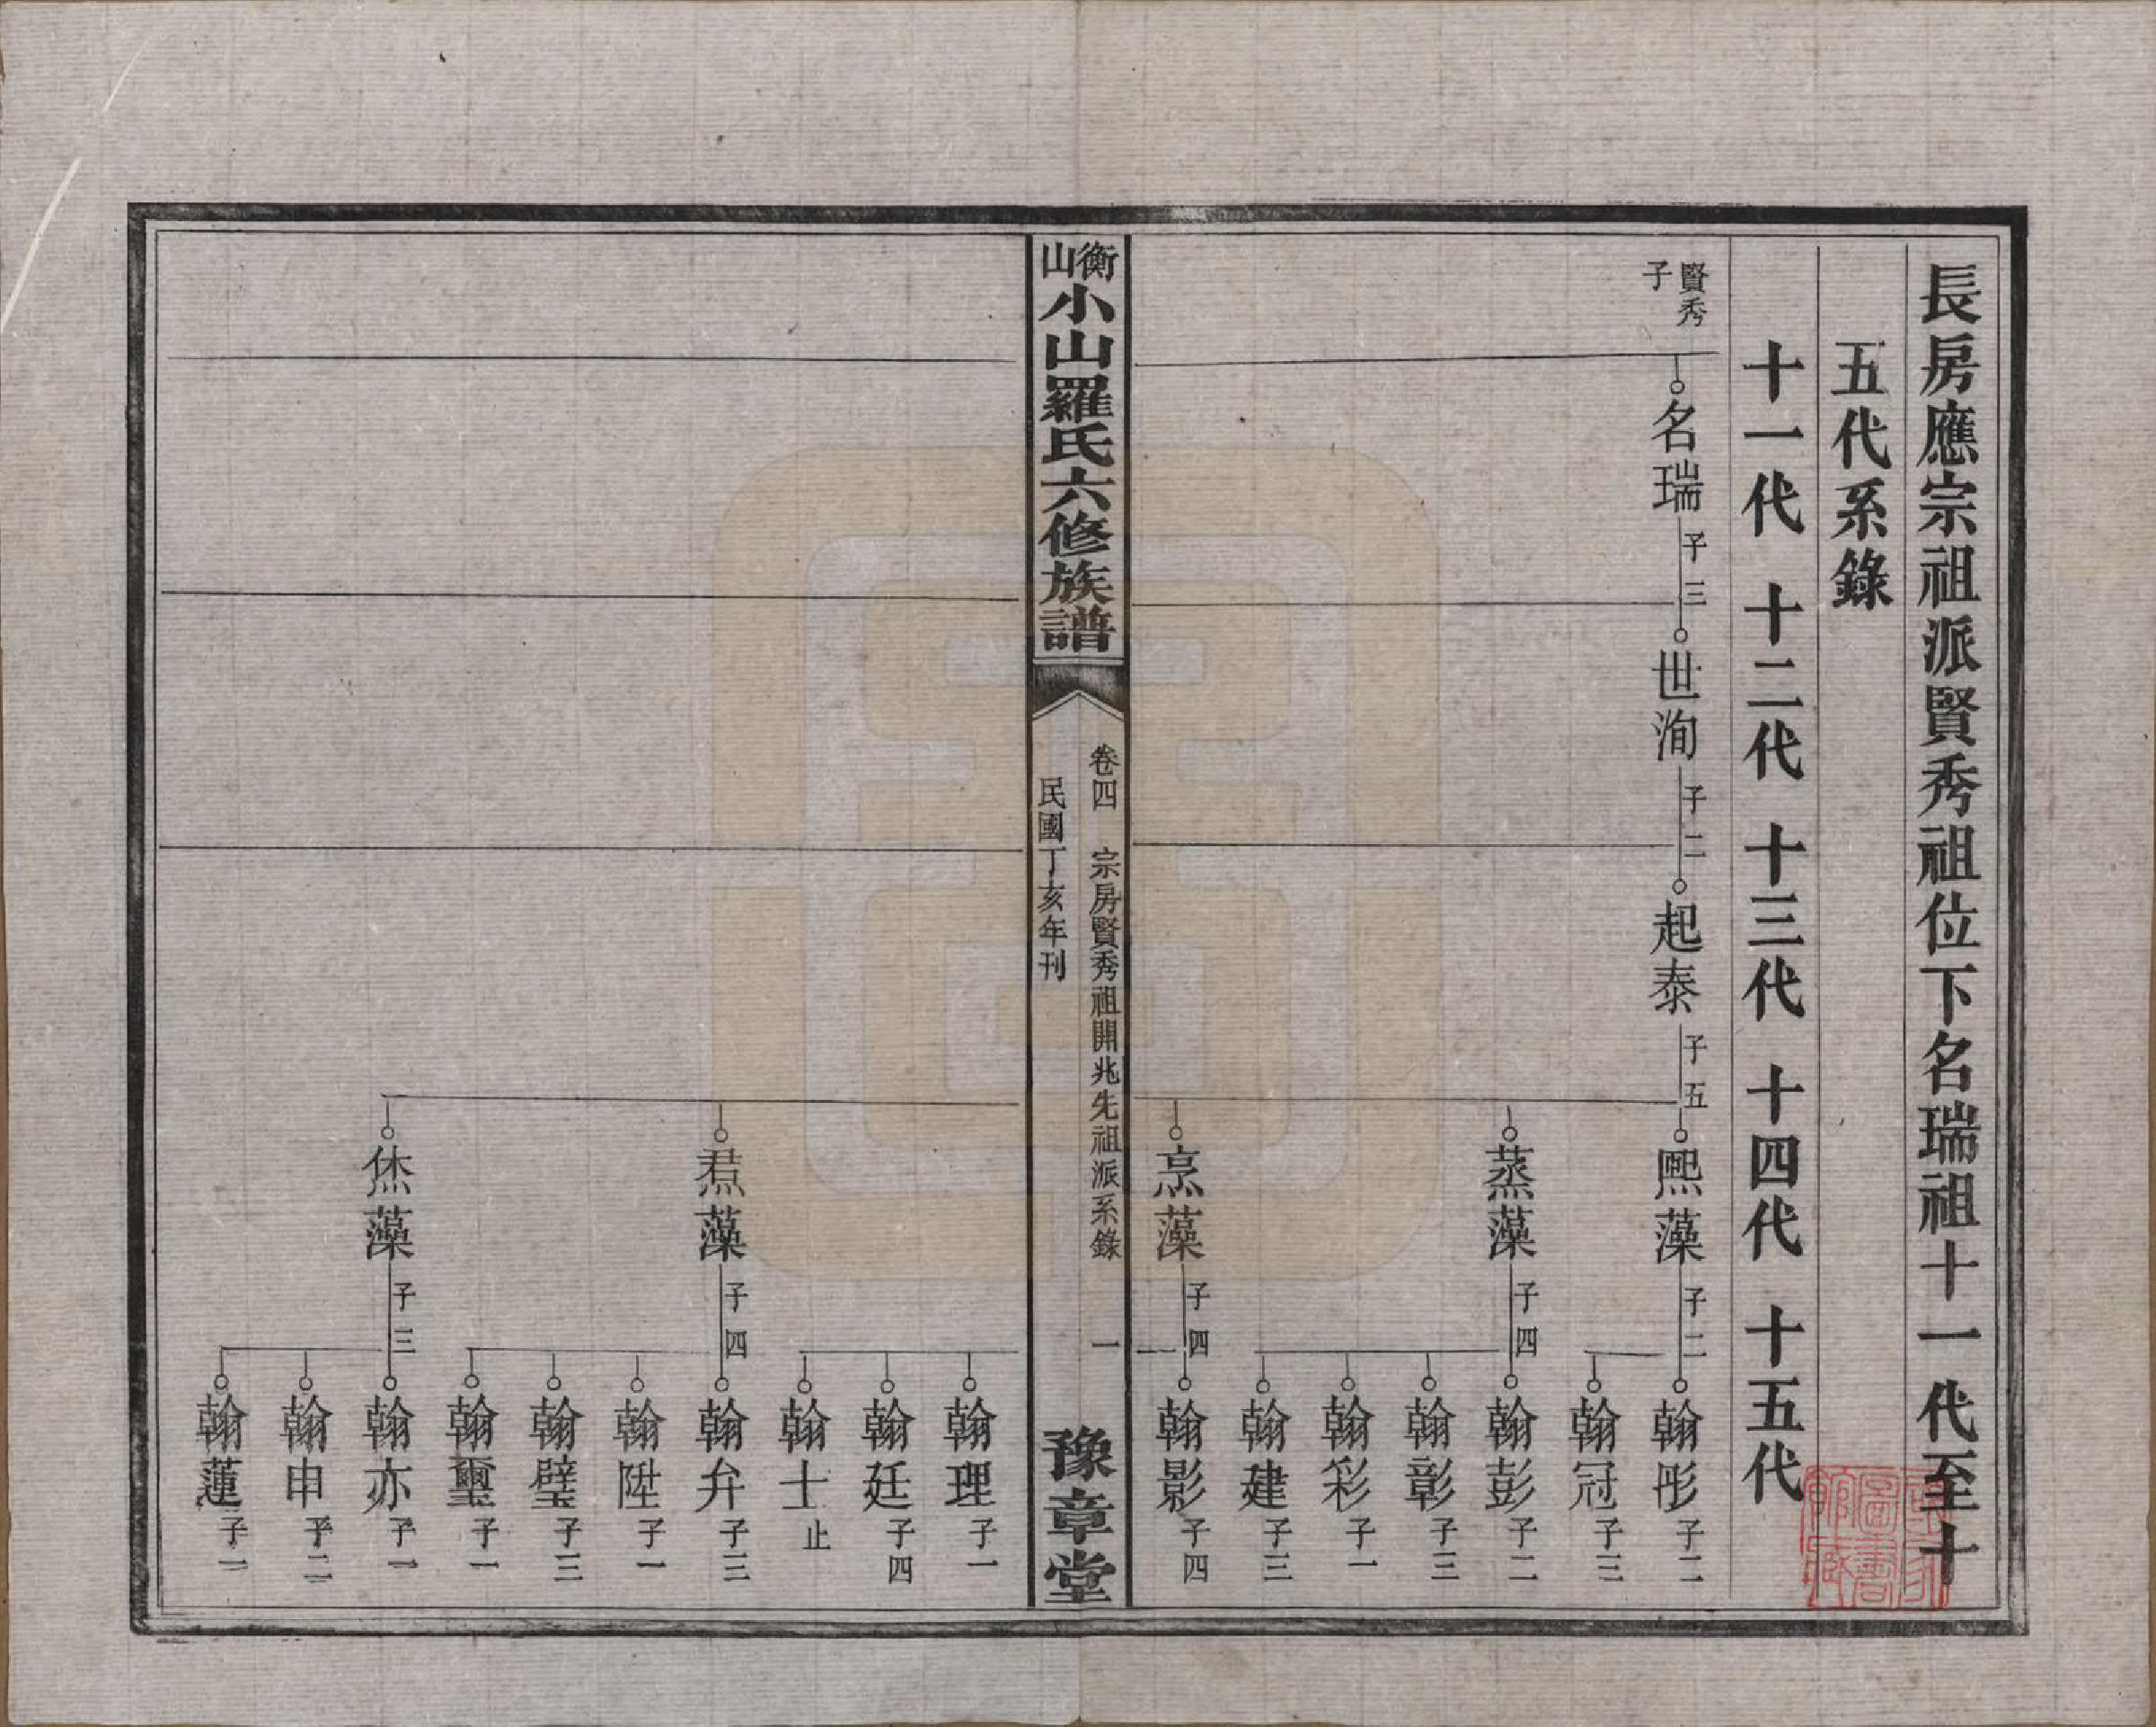 長房應宗祖派賢秀祖位下名瑞祖十一代至十
五代系錄
十一代　十二代　十三代　十四代　十五代
賢秀
子
名瑞　子三　世洵　子二　起泰　子五　熙藻　子二　翰彤　子二
翰冠　子三
蒸藻　子四　翰彭　子二
翰彰　子三
翰彩　子一
翰建　子三
烹藻　子四　翰影　子四
衡山小山羅氏六修族譜
卷四　宗房賢秀祖開兆先祖派系錄　一
民國丁亥年刊
豫章堂
翰理　子一
翰廷　子四
翰士　止
焄藻　子四　翰弁　子三
翰陞　子一
翰璧　子三
翰璽　子一
烋藻　子三　翰亦　子一
翰申　子二
翰蓮　子一